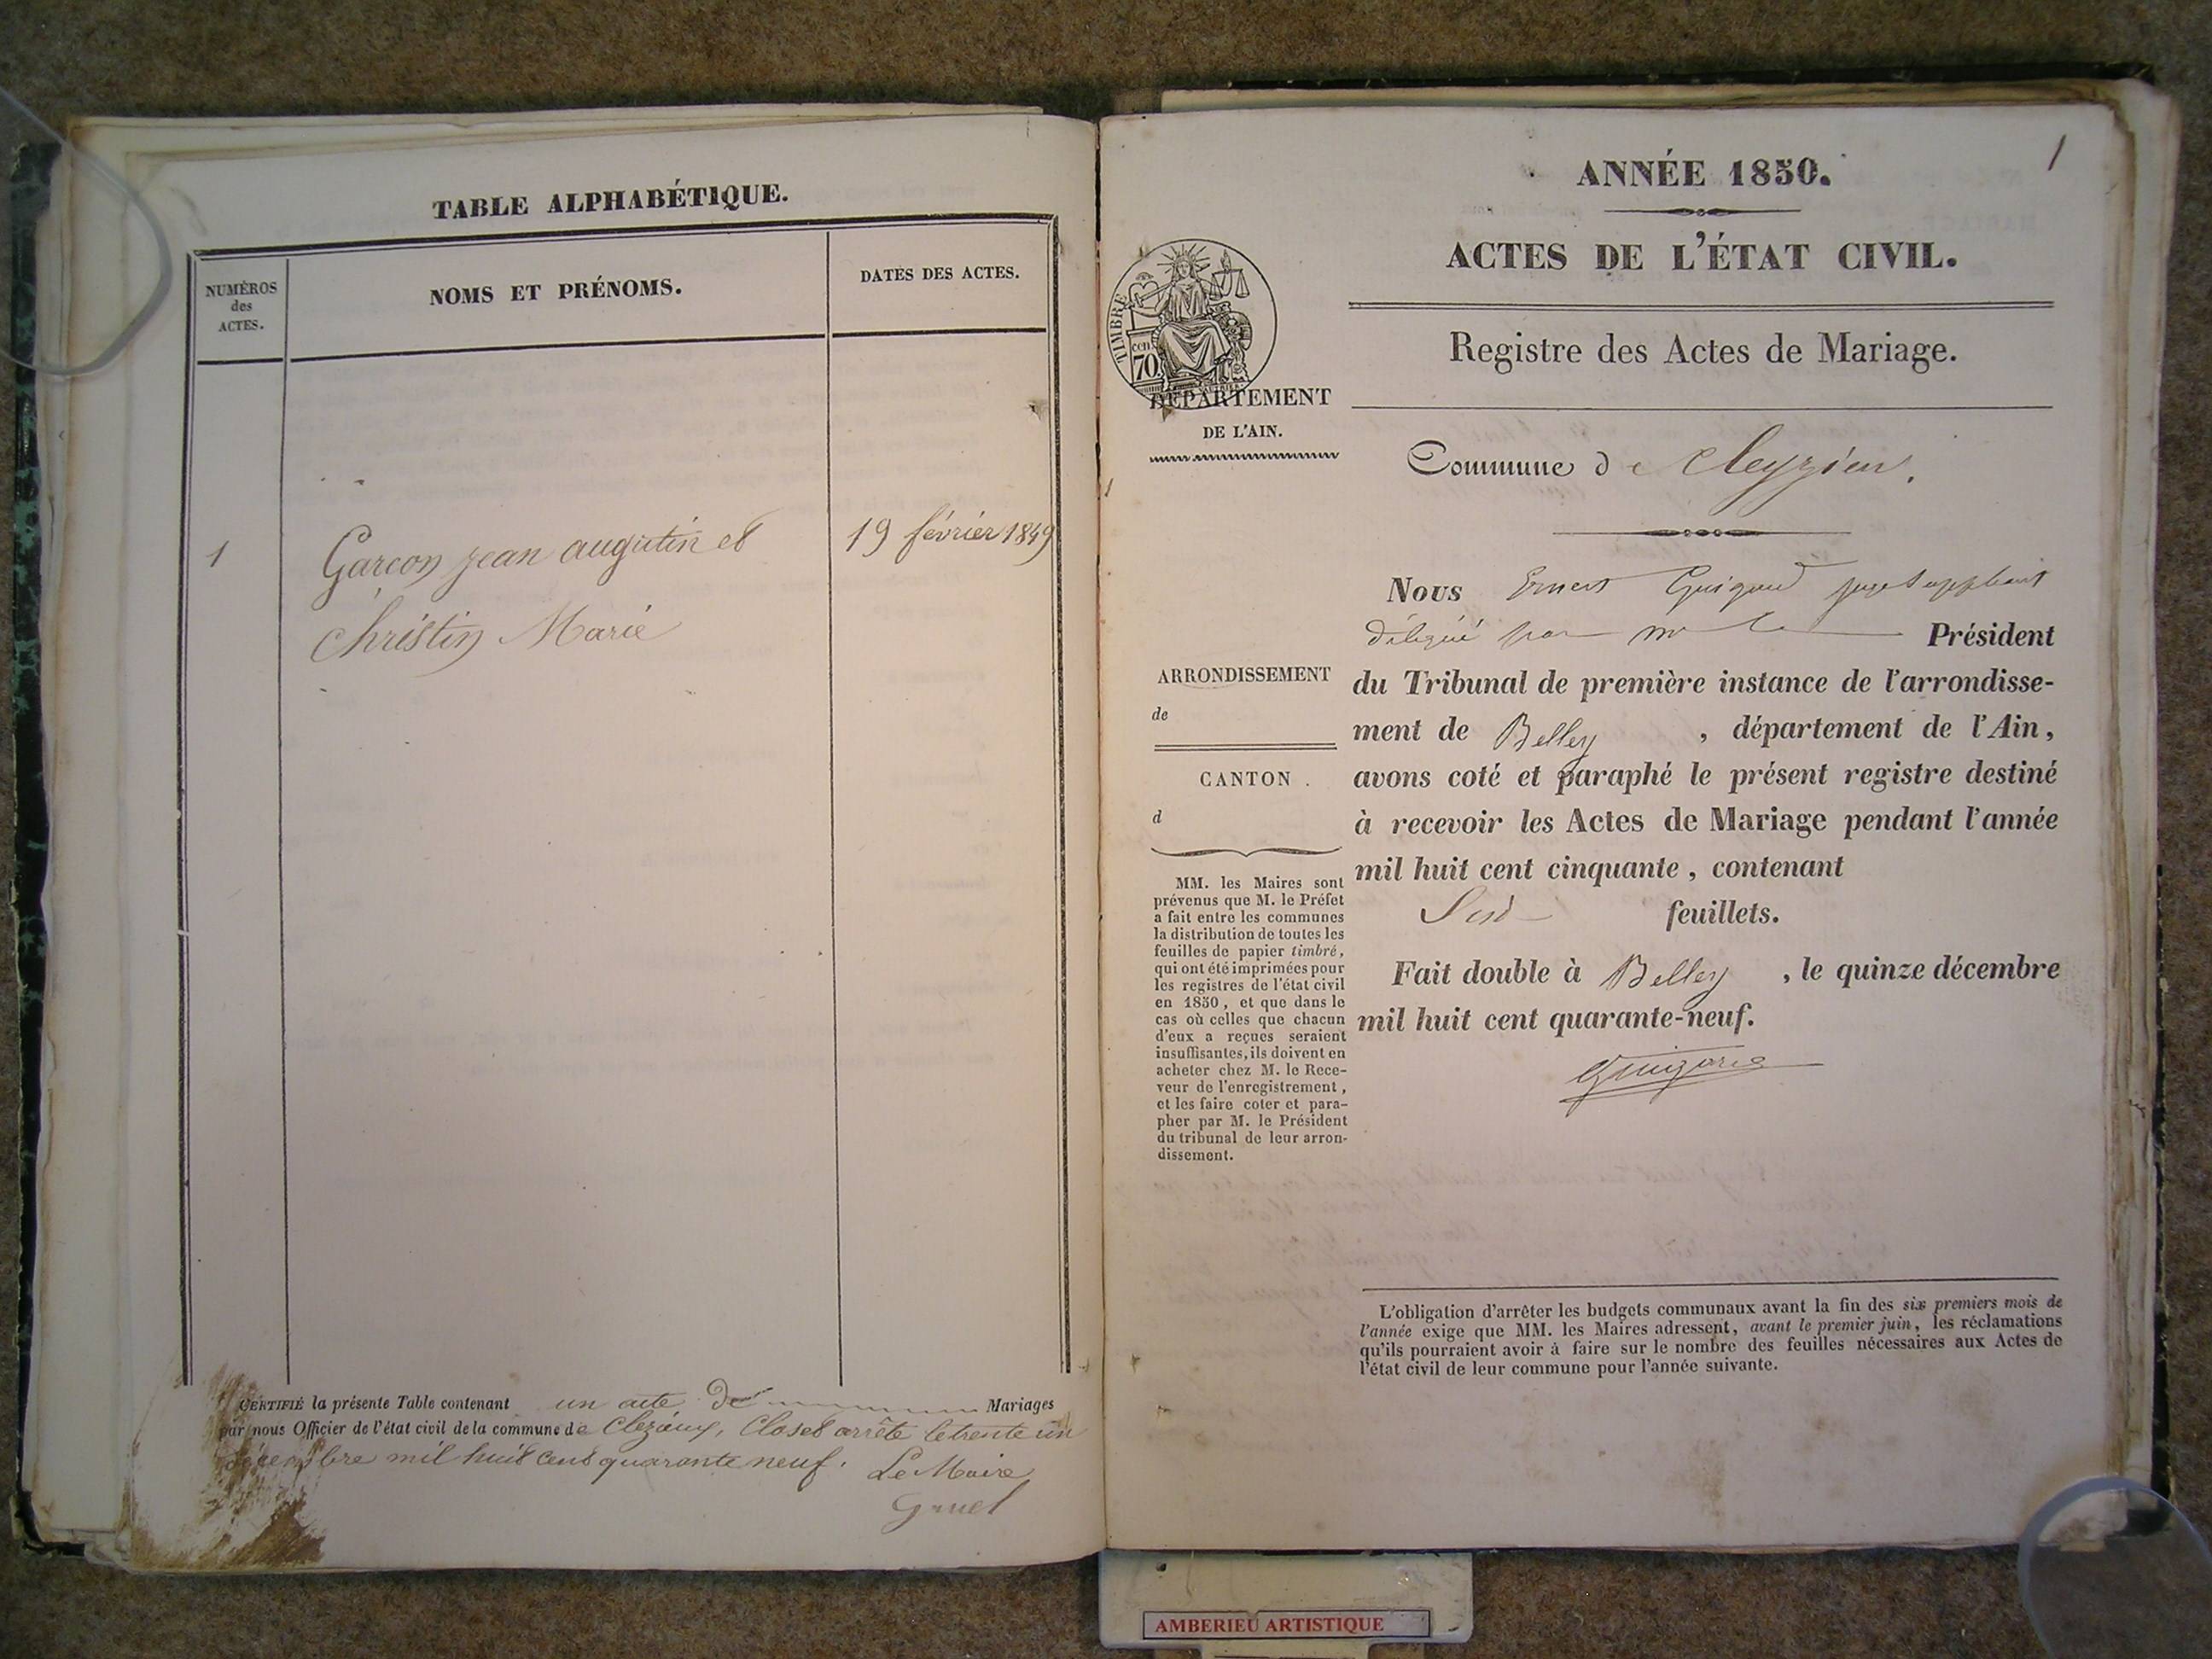 TABLE ALPHABÉTIQUE.
NUMÉROS
des
ACTES.
NOMS ET PRÉNOMS.
DATES DES ACTES.
1
Garcon jean augutin et
19 février 1849
Christin Marie
CERTIFIÉ la présente Table contenant un acte de Mariages
par nous Officier de l'état civil de la commune de Clezieux, Clos et arrête le trente un
décembre mil huit cent quarante neuf. Le Maire
Gruel
1
ANNÉE 1850.
ACTES DE L'ÉTAT CIVIL.
Registre des Actes de Mariage.
TIMBRE
cen.
70.
DÉPARTEMENT
DE L'AIN.
Commune de Cleyzieu.
Nous Ernest Guigard juge Suppléant
délégué par mr le Président
du Tribunal de première instance de l'arrondisse-
ment de Belley , département de l'Ain,
avons coté et paraphé le présent registre destiné
à recevoir les Actes de Mariage pendant l'année
mil huit cent cinquante, contenant
feuillets.
Fait double à Belley , le quinze décembre
mil huit cent quarante-neuf.
ARRONDISSEMENT
de
CANTON
d
MM. les Maires sont
prévenus que M. le Préfet
a fait entre les communes
la distribution de toutes les
feuilles de papier timbré,
qui ont été imprimées pour
les registres de l'état civil
en 1850, et que dans le
cas où celles que chacun
d'eux a reçues seraient
insuffisantes, ils doivent en
acheter chez M. le Rece-
veur de l'enregistrement,
et les faire coter et para-
pher par M. le Président
du tribunal de leur arron-
dissement.
L'obligation d'arrêter les budgets communaux avant la fin des six premiers mois de
l'année exige que MM. les Maires adressent, avant le premier juin, les réclamations
qu'ils pourraient avoir à faire sur le nombre des feuilles nécessaires aux Actes de
l'état civil de leur commune pour l'année suivante.
AMBERIEU ARTISTIQUE